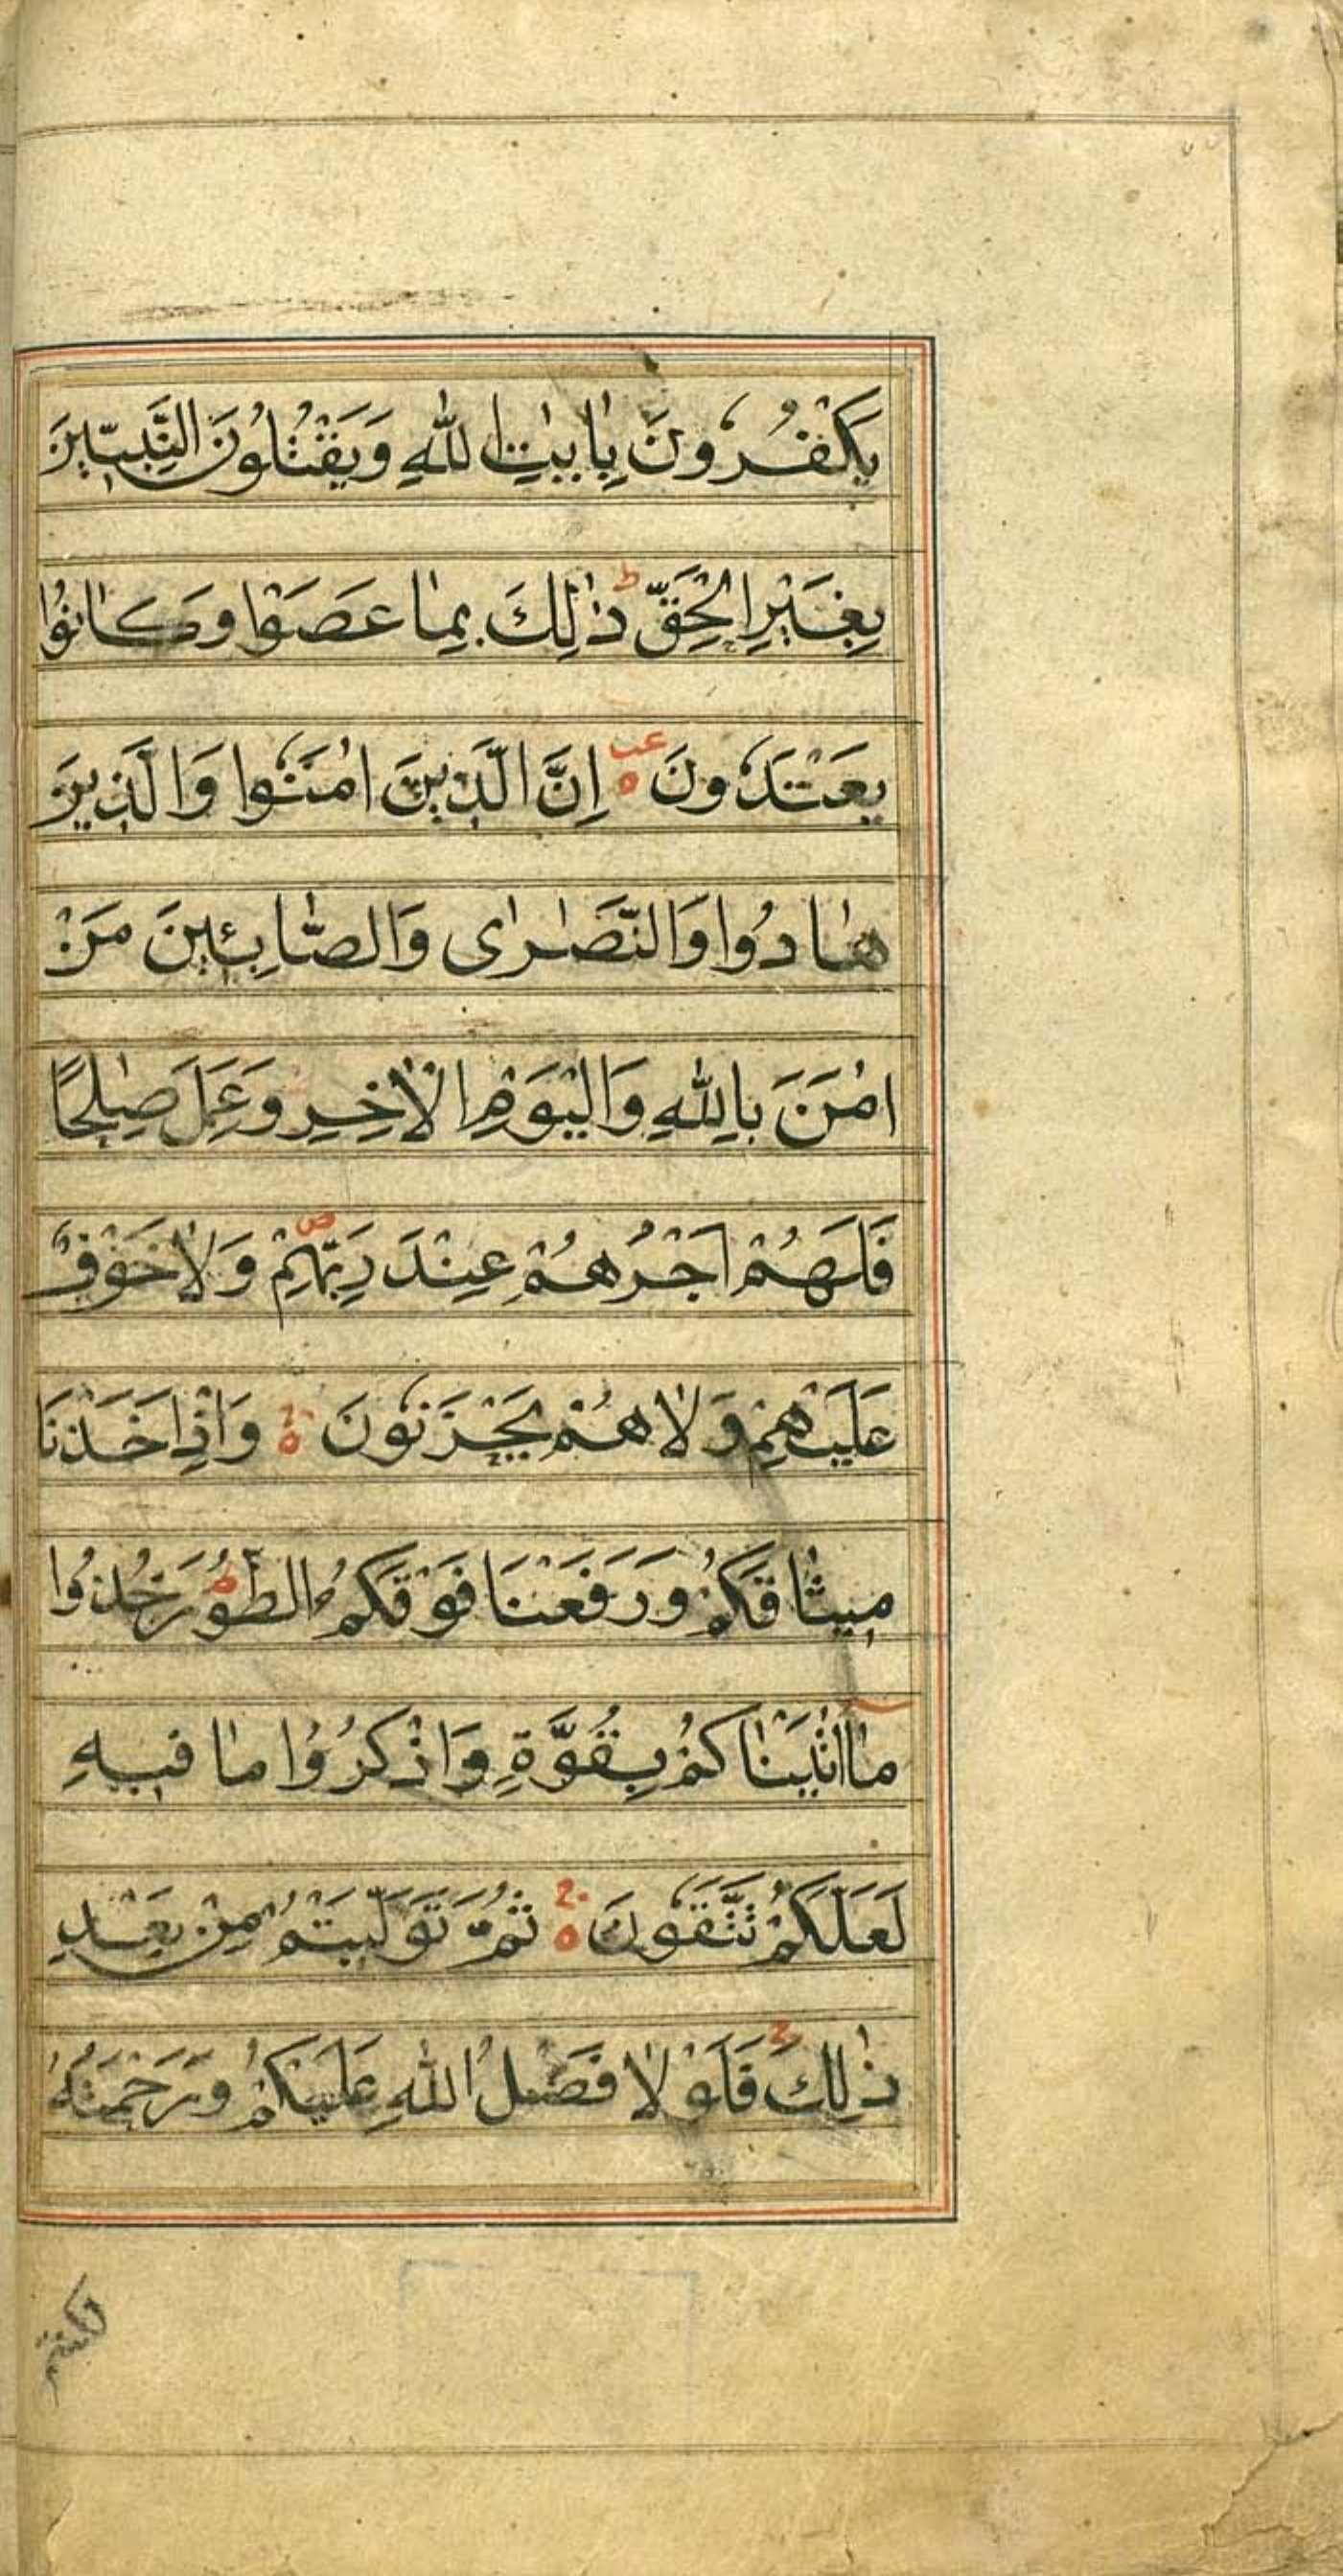 يَكْفُرُونَ بِاٰيٰتِ اللّٰهِ وَيَقْتُلُونَ النَّبِيّٖنَ
بِغَيْرِ الْحَقِّ ؕ ذٰلِكَ بِمَا عَصَوْا وَكَانُوْا
يَعْتَدُونَ ۝ اِنَّ الَّذِينَ اٰمَنُوا وَالَّذِينَ
هَادُوا وَالنَّصَارٰى وَالصَّابِئِينَ مَنْ
اٰمَنَ بِاللّٰهِ وَالْيَوْمِ الْاٰخِرِ وَعَمِلَ صٰلِحًا
فَلَهُمْ اَجْرُهُمْ عِنْدَ رَبِّهِمْ ۖ وَلَا خَوْفٌ
عَلَيْهِمْ وَلَا هُمْ يَحْزَنُونَ ۝ وَاِذْ اَخَذْنَا
مِيثَاقَكُمْ وَرَفَعْنَا فَوْقَكُمُ الطُّوْرَ خُذُوا
مَا اٰتَيْنَاكُمْ بِقُوَّةٍ وَاذْكُرُوا مَا فِيهِ
لَعَلَّكُمْ تَتَّقُونَ ۝ ثُمَّ تَوَلَّيْتُمْ مِنْ بَعْدِ
ذٰلِكَ ۚ فَلَوْلَا فَضْلُ اللّٰهِ عَلَيْكُمْ وَرَحْمَتُهُ
لكنتم